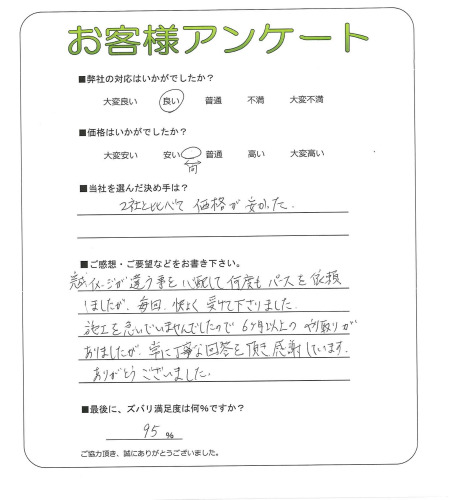 お客様アンケート
■弊社の対応はいかがでしたか？
大変良い 良い 普通 不満 大変不満
■価格はいかがでしたか？
大変安い 安い 普通 高い 大変高い
■当社を選んだ決め手は？
2社と比べて 価格が安かった.
■ご感想・ご要望などをお書き下さい。
イメージが違う事を心配して何度もパースを依頼
しましたが、毎回、快よく受けて下さりました.
施工を急いでいませんでしたので6ヶ月以上のやり取りが
ありましたが、常に丁寧な回答を頂き、感謝しています.
ありがとうございました.
■最後に、ズバリ満足度は何％ですか？
95 ％
ご協力頂き、誠にありがとうございました。